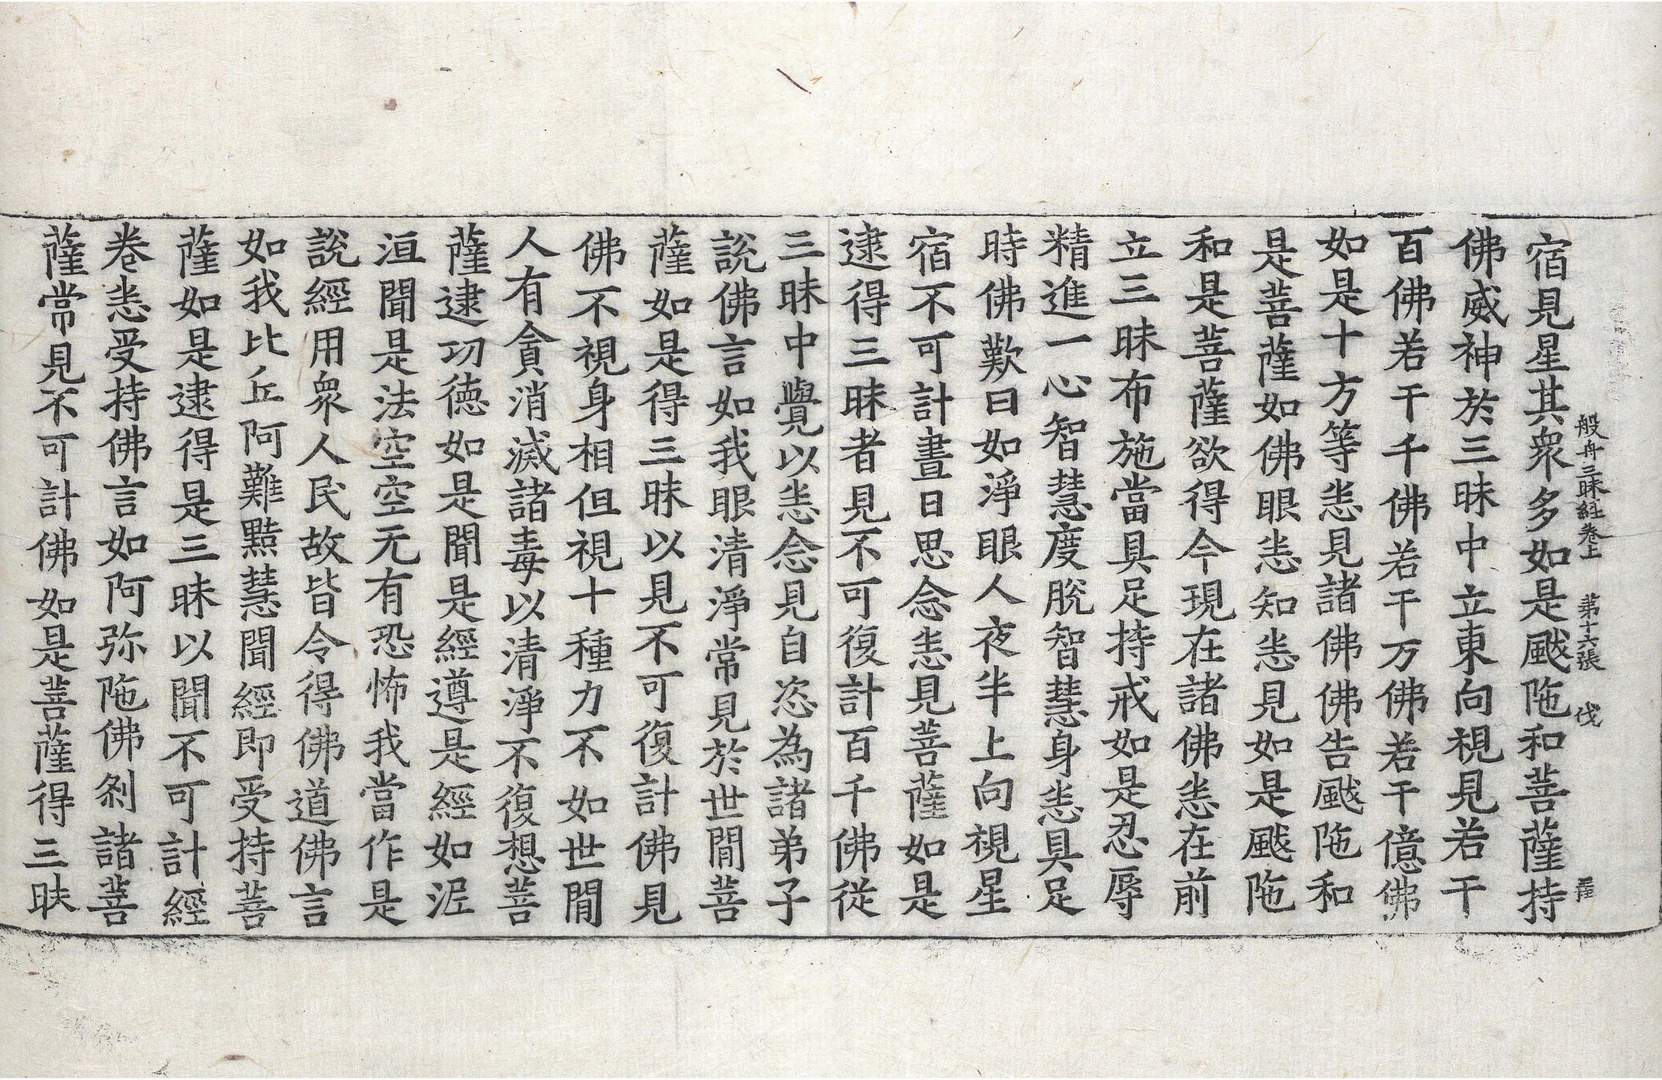 般舟三昧経卷上　第十六張　伐
宿見星其衆多如是颰陁和菩薩持
佛威神於三昧中立東向視見若干
百佛若干千佛若干万佛若干億佛
如是十方等悉見諸佛佛告颰陁和
是菩薩如佛眼悉知悉見如是颰陁
和是菩薩欲得今現在諸佛悉在前
立三昧布施當具足持戒如是忍辱
精進一心智慧度脫智慧身悉具足
時佛歎曰如淨眼人夜半上向視星
宿不可計晝日思念悉見菩薩如是
逮得三昧者見不可復計百千佛從
三昧中覺以悉念見自恣為諸弟子
說佛言如我眼清淨常見於世閒菩
薩如是得三昧以見不可復計佛見
佛不視身相但視十種力不如世閒
人有貪消滅諸毒以清淨不復想菩
薩逮功德如是聞是經遵是經如泥
洹聞是法空空无有恐怖我當作是
說經用衆人民故皆令得佛道佛言
如我比丘阿難黠慧聞經即受持菩
薩如是逮得是三昧以聞不可計經
卷悉受持佛言如阿弥陁佛剎諸菩
薩常見不可計佛如是菩薩得三昧